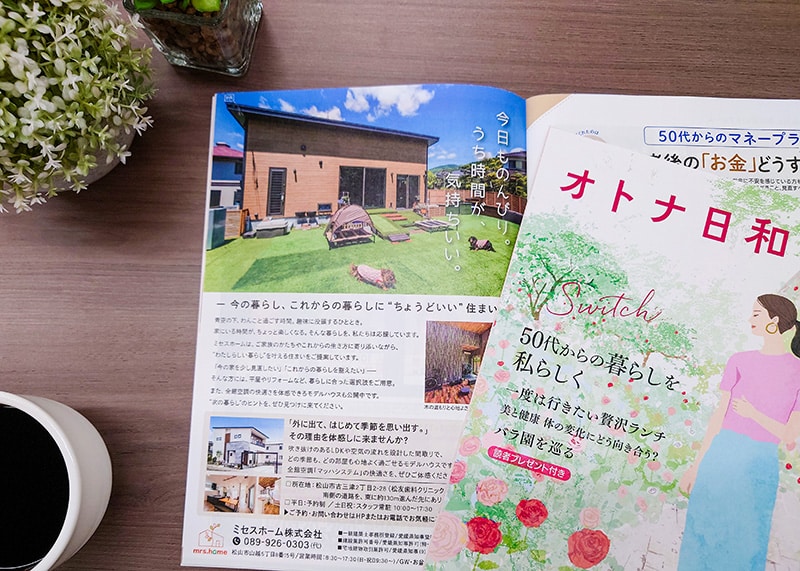 今日ものんびり。
うち時間が、
気持ちいい。
― 今の暮らし、これからの暮らしに“ちょうどいい”住まい
青空の下、わんこと過ごす時間。趣味に没頭するひととき。
家にいる時間が、ちょっと楽しくなる。そんな暮らしを、私たちは応援しています。
ミセスホームは、ご家族のかたちやこれからの生き方に寄り添いながら、
“わたしらしい暮らし”を叶える住まいをご提案しています。
「今の家を少し見直したい」「これからの暮らしを整えたい」―
そんな方には、平屋やリフォームなど、暮らしに合った選択肢をご用意。
また、全館空調の快適さを体感できるモデルハウスも公開中です。
“次の暮らし”のヒントを、ぜひ見つけに来てください。
木の温もりと心地よさ
「外に出て、はじめて季節を思い出す。」
その理由を体感しに来ませんか?
吹き抜けのあるLDKや空気の流れを設計した間取りで、
どの季節も、どの部屋も心地よく過ごせるモデルハウスです
全館空調「マッハシステム」の快適さを、ぜひご体感くださ
□所在地：松山市古三津2丁目2-28(松友歯科クリニック
南側の道路を、東に約130m進んだ先にあり
□平日：予約制 / 土日祝：スタッフ常駐 10:00～17:00
▶ご予約・お問い合わせはHPまたはお電話でお気軽に
mrs.home
ミセスホーム株式会社
089-926-0303(代)
松山市山越5丁目8番15号/営業時間：8:30～17:30
50代からのマネープラ
老後の「お金」どうす
オトナ日和
Switch
50代からの暮らしを
私らしく
一度は行きたい贅沢ランチ
美と健康 体の変化にどう向き合う?
バラ園を巡る
読者プレゼント付き